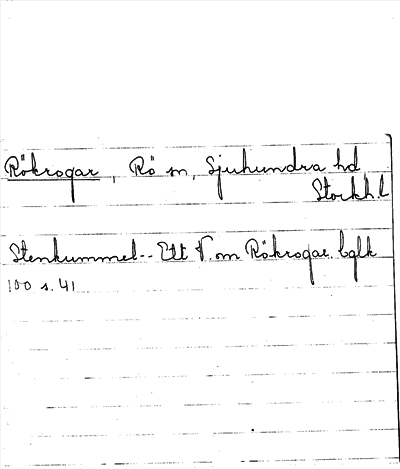 Rökrogar, Rö sn, Sjuhundra hd
Stockh.l
Stenkummel -- Ett V. om Rökrogar. bglk
100 s. 41